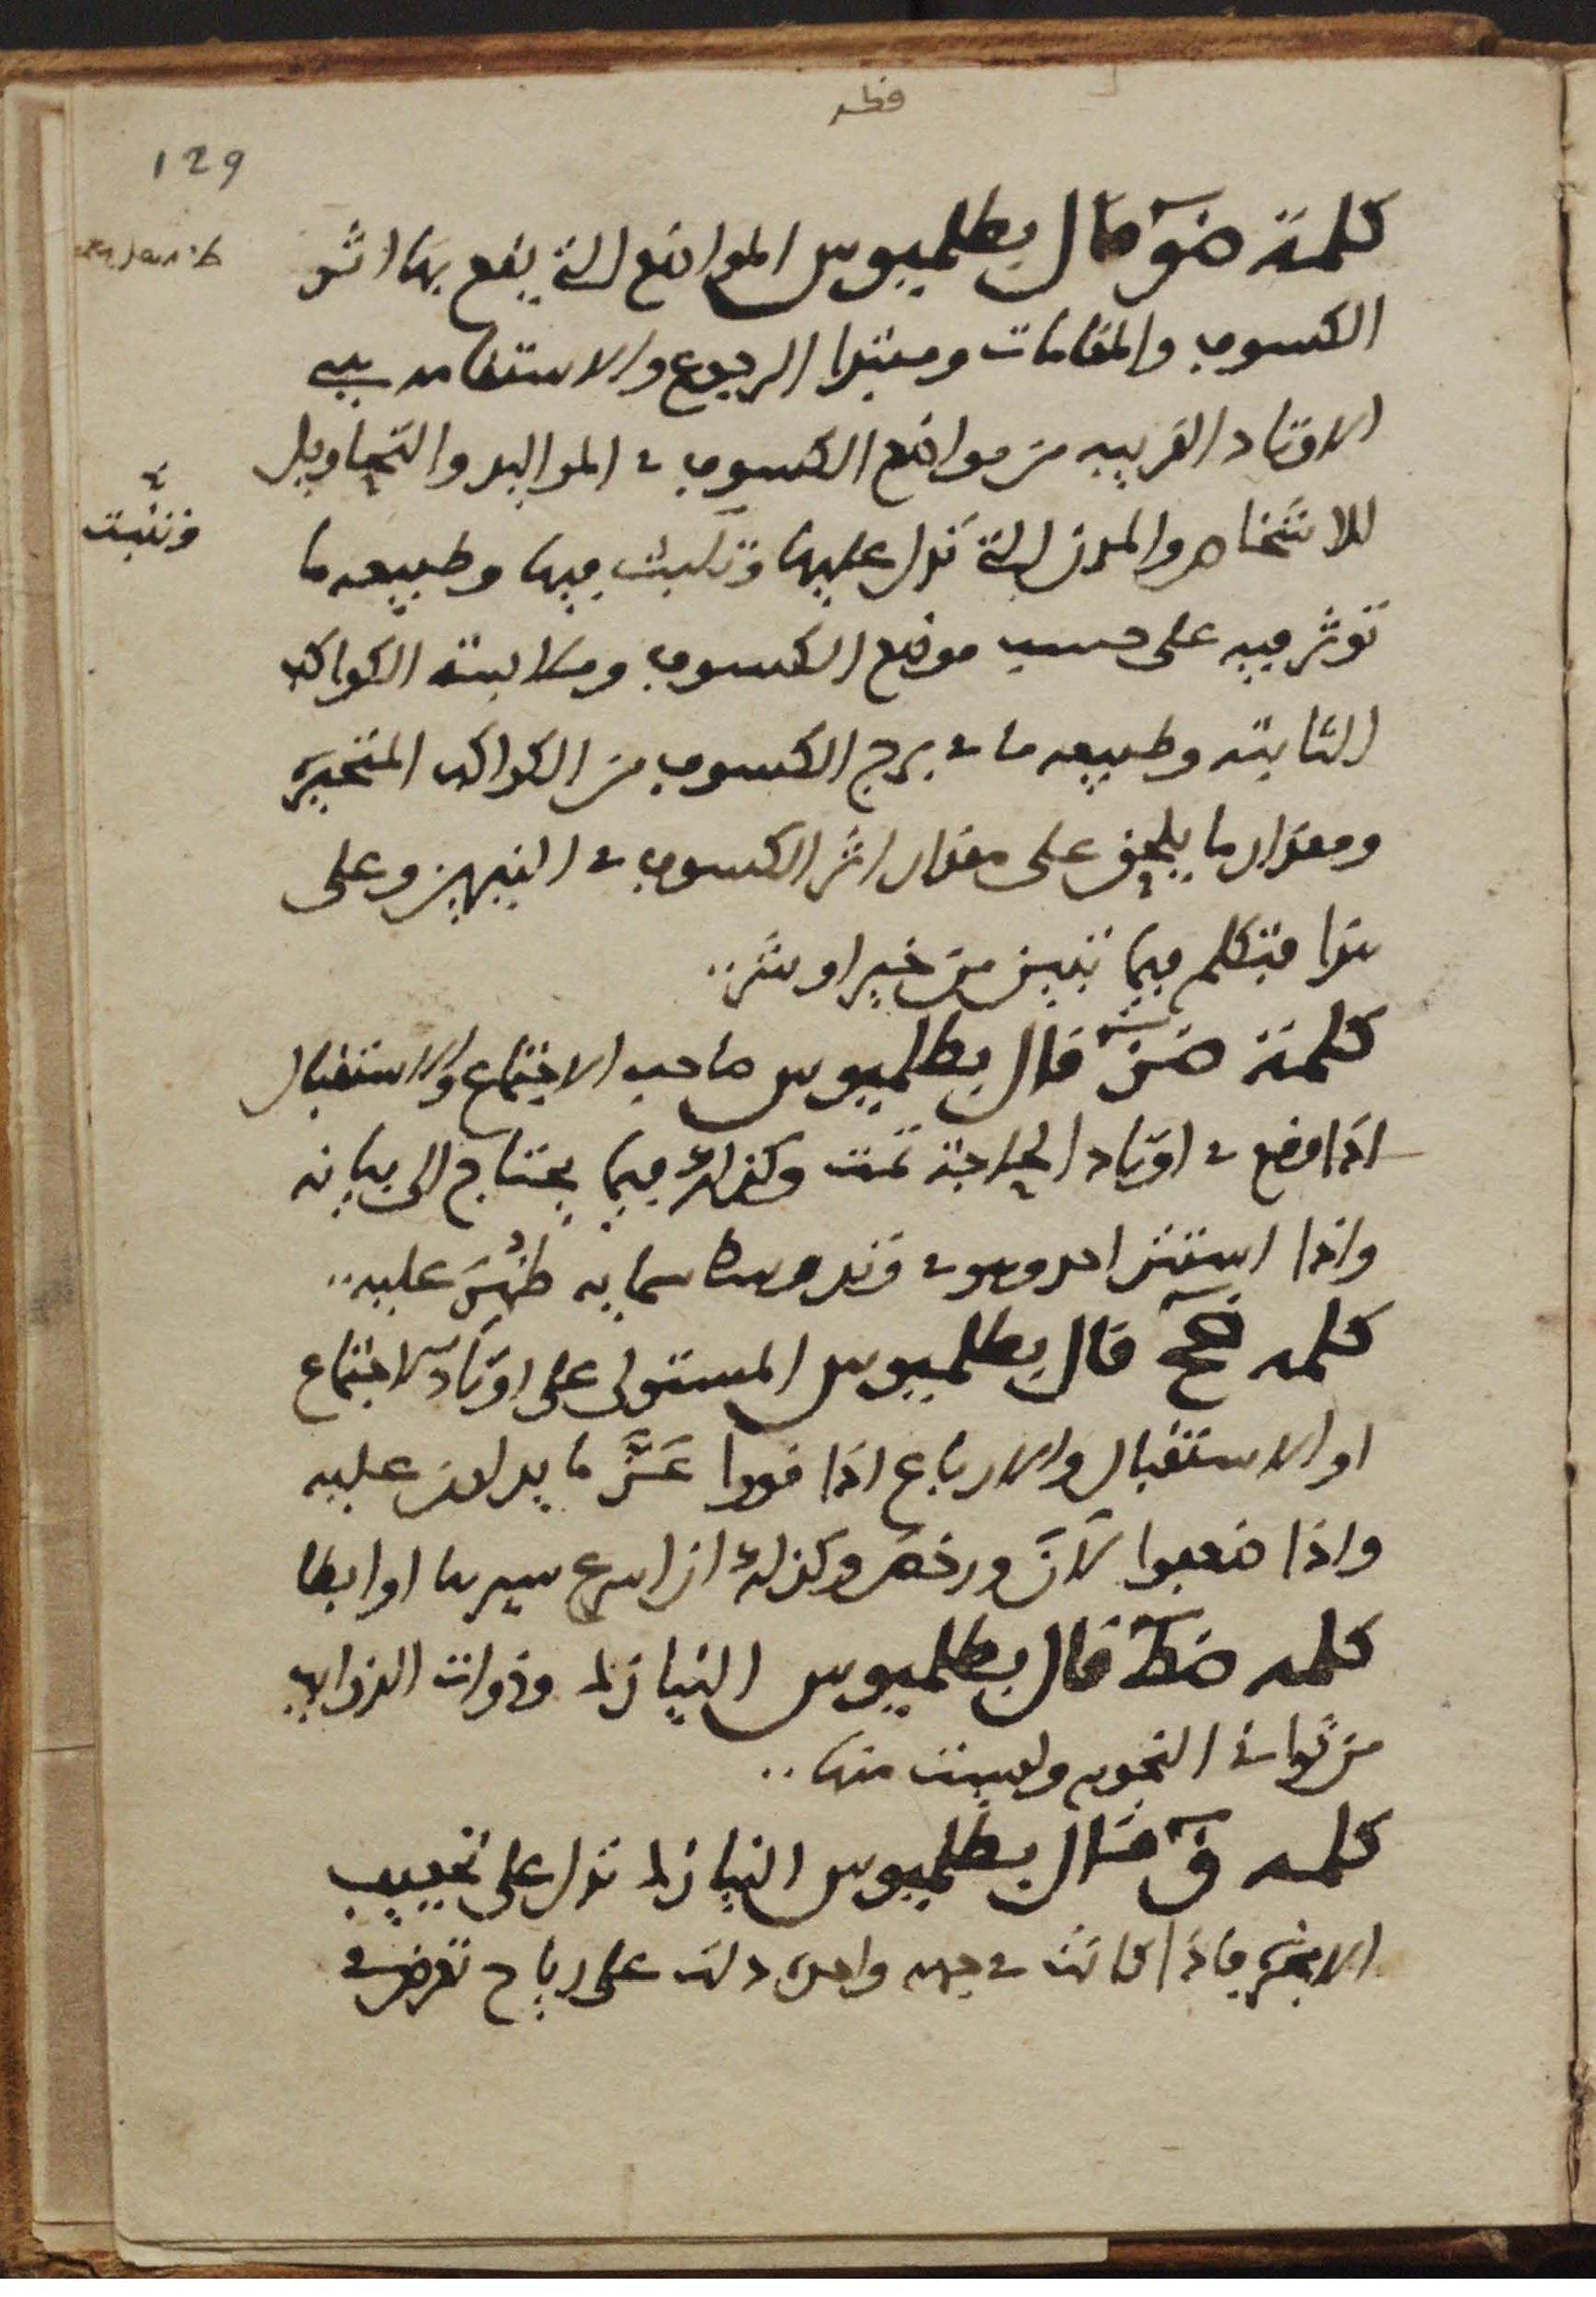 129
كلمة ضو قال بطلميوس المواضع التي يقع بها اثر
الكسوف والمقامات ومبتدا الرجوع والاستقامه هي
الاوتاد القريبه من مواضع الكسوف في المواليد والتحاويل
للاشخاص والمدن التي تدل عليها وتلبث فيها وطبيعه ما
وتثبت
توثر فيه على حسب موضع الكسوف وملابسة الكواكب
الثابته وطبيعه ما في برج الكسوف من الكواكب المتحيره
ومقدار ما يلحق على مقدار اثر الكسوف في النيرين وعلى
هذا فتكلم فيما تبين من خير او شر
كلمة ضز قال بطلميوس صاحب الاجتماع والاستقبال
اذا وقع في اوتاد الحاجة تمت وكذلك فيما يحتاج الى بيانه
واذا استتر احد وهو في وتد وسط سمايه ظهر عليه
كلمه ضح قال بطلميوس المستولى على اوتاد الاجتماع
او الاستقبال والارباع اذا قووا عز ما يدلون عليه
واذا ضعفوا لان ورخص وكذلك ان اسرع سيرها او ابطا
كلمه ضط قال بطلميوس النيازك وذوات الذوايب
من ثواني النجوم وليست منها
كلمه ق قال بطلميوس النيازك تدل على تجفيف
الابخره فاذا كانت في جهه واحده دلت على رياح تعرض في